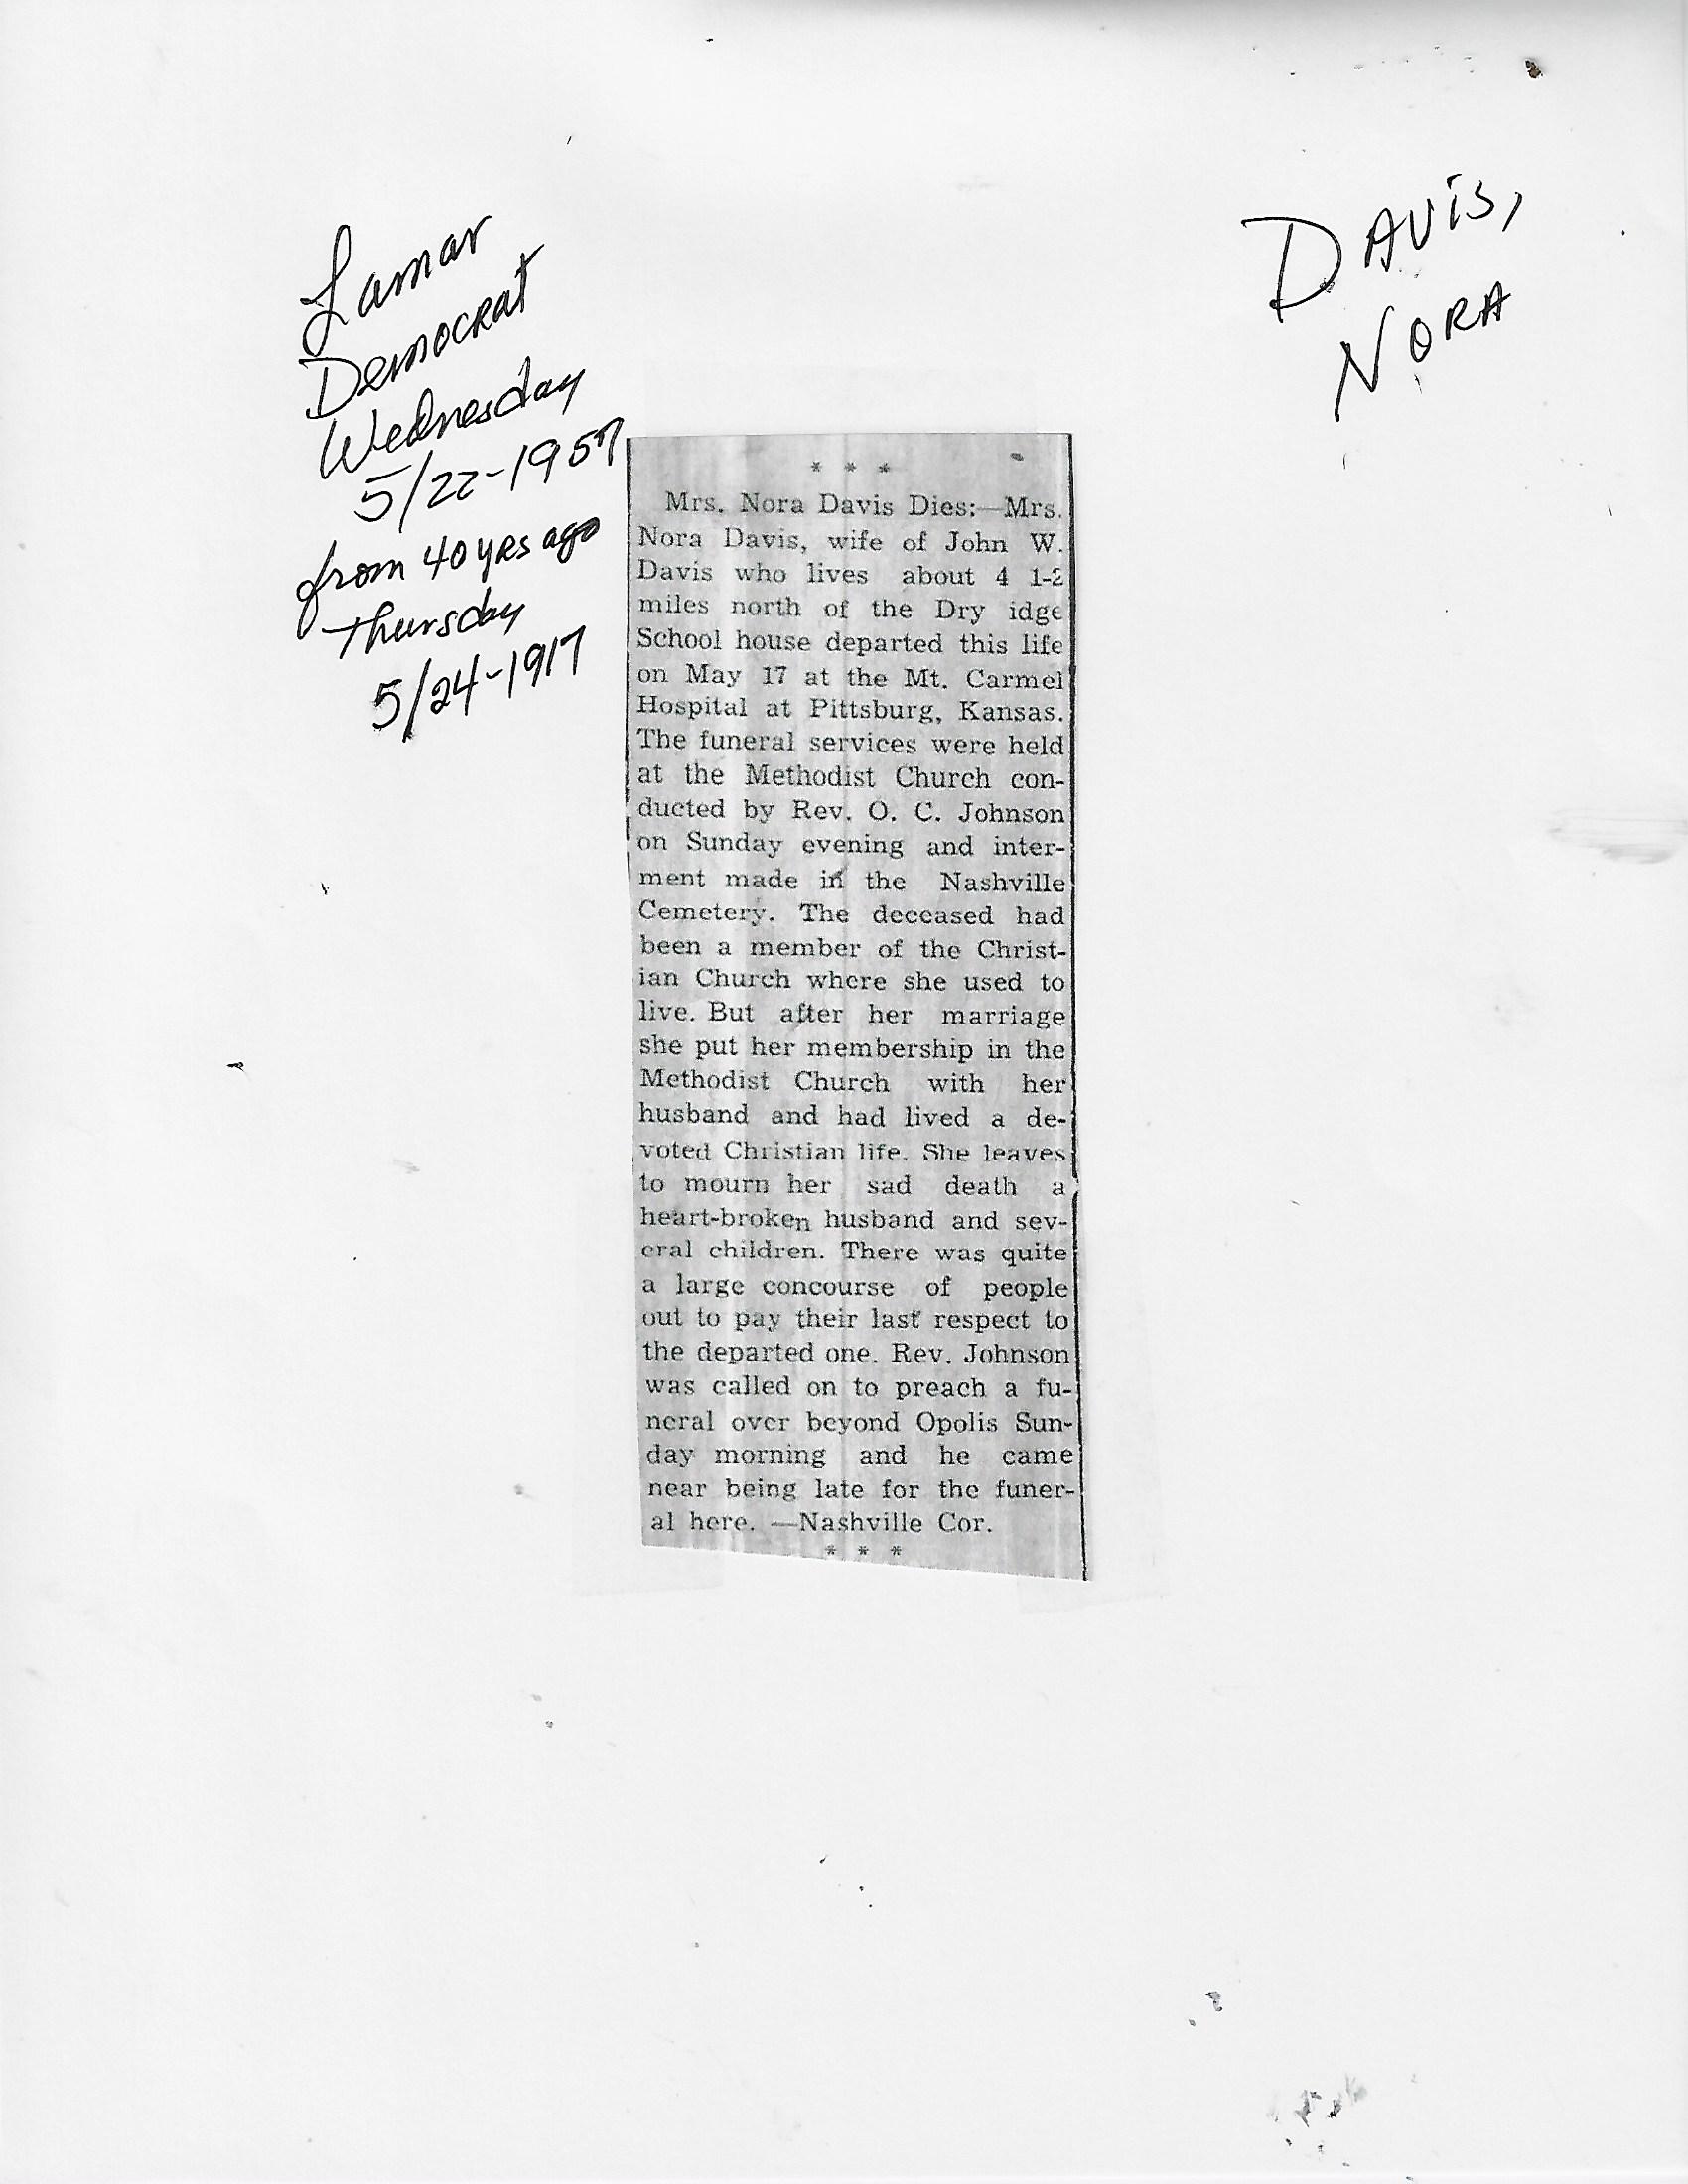 Lamar
Democrat
Wednesday
5/22-1957
from 40 yrs ago
Thursday
5/24-1917
DAVIS,
NORA
* * *
Mrs. Nora Davis Dies:—Mrs.
Nora Davis, wife of John W.
Davis who lives about 4 1-2
miles north of the Dry idge
School house departed this life
on May 17 at the Mt. Carmel
Hospital at Pittsburg, Kansas.
The funeral services were held
at the Methodist Church con-
ducted by Rev. O. C. Johnson
on Sunday evening and inter-
ment made in the Nashville
Cemetery. The deceased had
been a member of the Christ-
ian Church where she used to
live. But after her marriage
she put her membership in the
Methodist Church with her
husband and had lived a de-
voted Christian life. She leaves
to mourn her sad death a
heart-broken husband and sev-
eral children. There was quite
a large concourse of people
out to pay their last respect to
the departed one. Rev. Johnson
was called on to preach a fu-
neral over beyond Opolis Sun-
day morning and he came
near being late for the funer-
al here. —Nashville Cor.
* * *